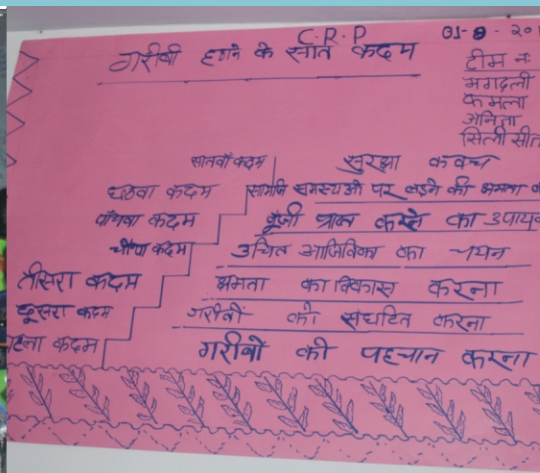 C.R.P
01-9-201
गरीबी हटाने के सात कदम
टीम नः
मगदली
कमला
अनिता
सिल्ली सीत
सातवाँ कदम सुरक्षा कवच
छठवा कदम सामाजि समस्याओ पर लड़ने की क्षमता
पाँचवा कदम पूँजी प्राप्त करने का उपाय
चौथा कदम उचित आजिविका का चयन
तीसरा कदम क्षमता का विकास करना
दूसरा कदम गरीबों को संघटित करना
हला कदम गरीबो की पहचान करना